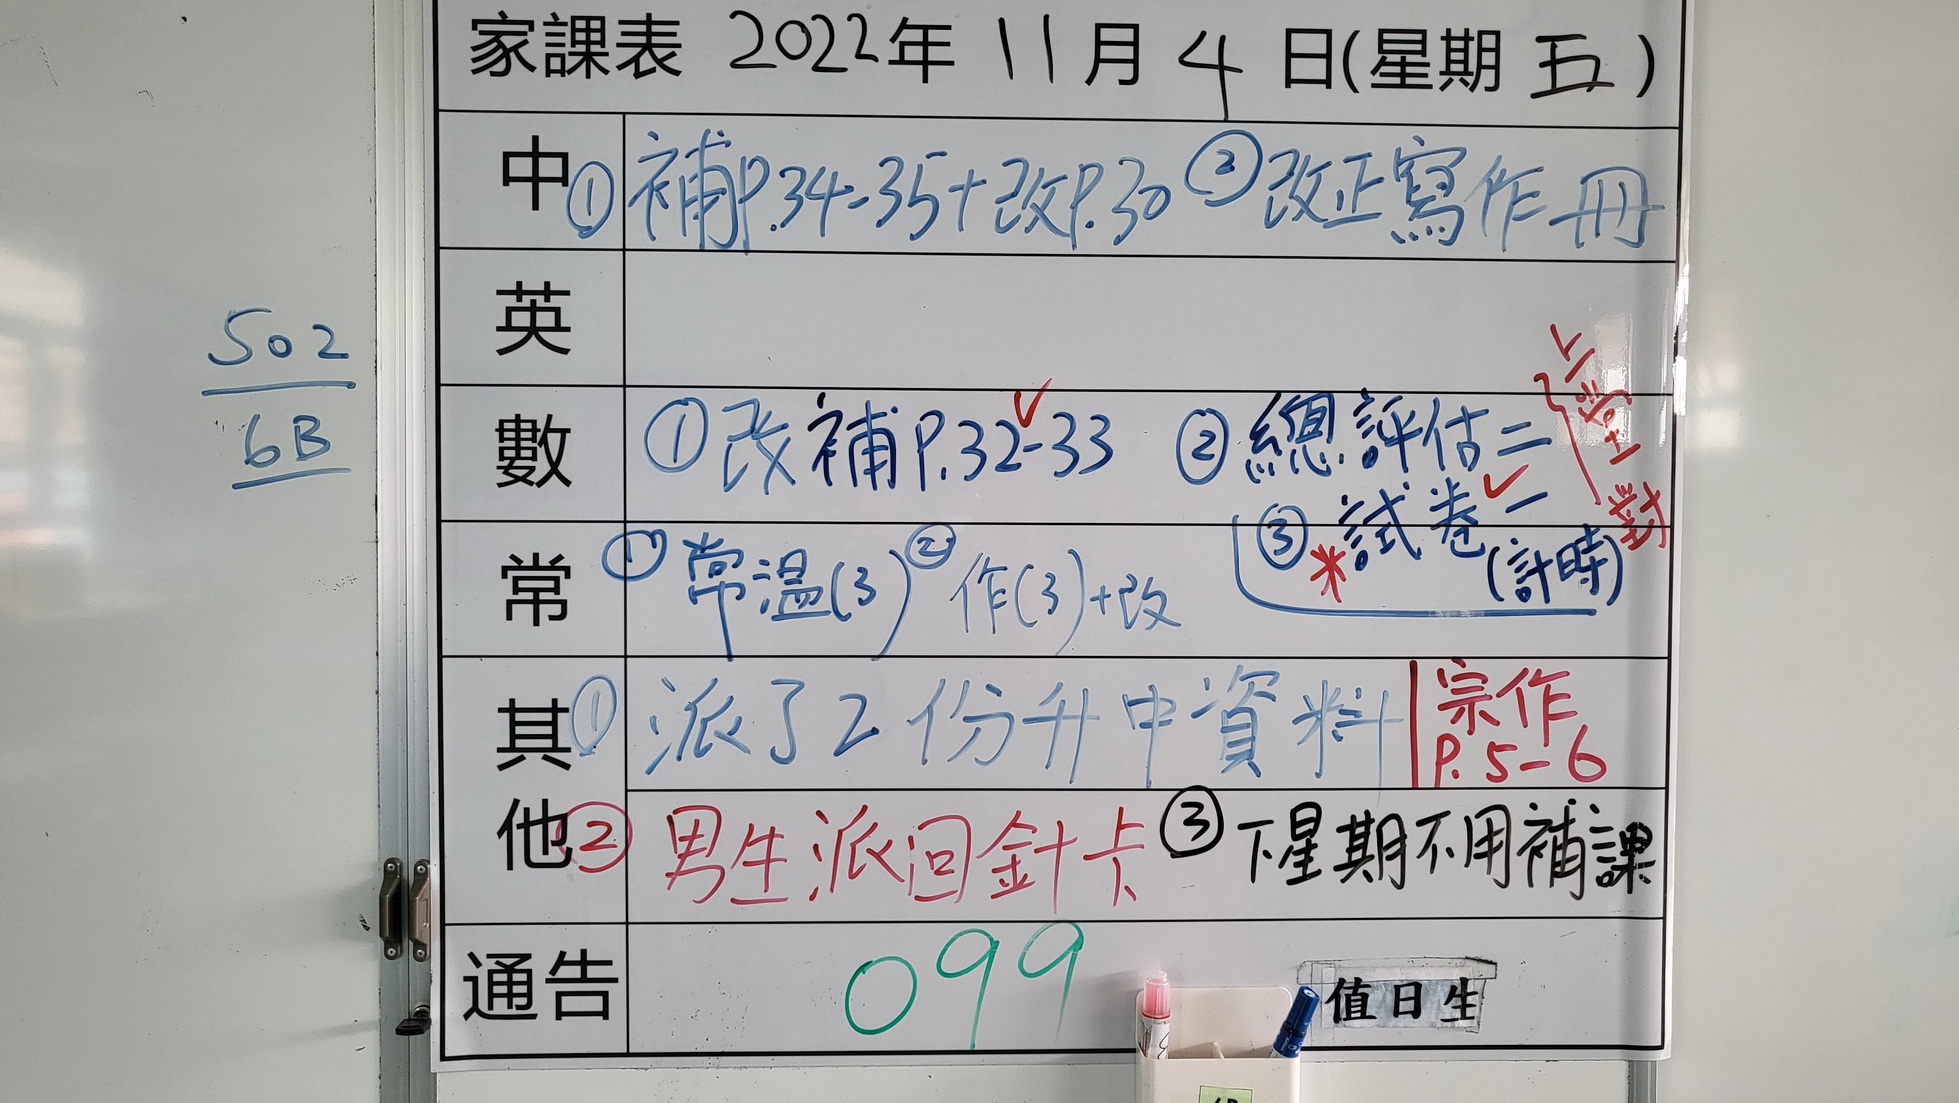 家課表 2022年 11月 4日(星期五)
中 ① 補P.34-35+改P.30 ② 改正寫作冊
英
502
6B
數 ① 改補P.32-33 ② 總評估二
③ 試卷一
*
(計時)
對
常 ① 常溫(3) ② 作(3)+改
其他 ① 派了2份升中資料
宗作
P.5-6
② 男生派回針卡 ③ 下星期不用補課
通告 099
值日生